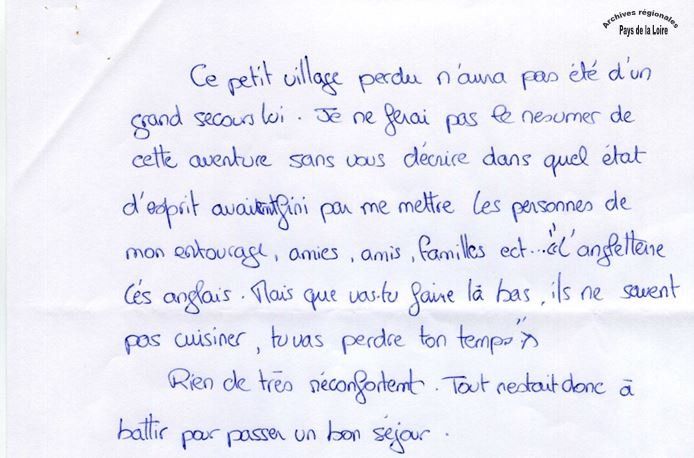 Archives régionales
Pays de la Loire
Ce petit village perdu n'aura pas été d'un
grand secours lui. Je ne ferai pas le resumer de
cette aventure sans vous décrire dans quel état
d'esprit avaient fini par me mettre les personnes de
mon entourage, amies, amis, familles ect... "l'angleterre
lés anglais. Mais que vas-tu faire là bas, ils ne savent
pas cuisiner, tu vas perdre ton temps"
Rien de très réconfortent. Tout restait donc à
battir pour passer un bon séjour.